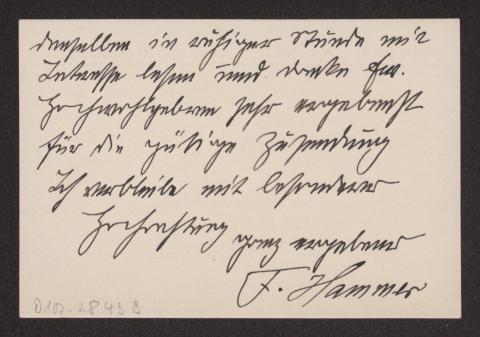 denselben in ruhiger Stunde mit
Interesse lesen und danke Ew.
Hochwohlgeboren sehr ergebenst
für die gütige Zusendung
Ich verbleibe mit besonderer
Hochachtung ganz ergebenst
F. Hammer
D102-2843 B